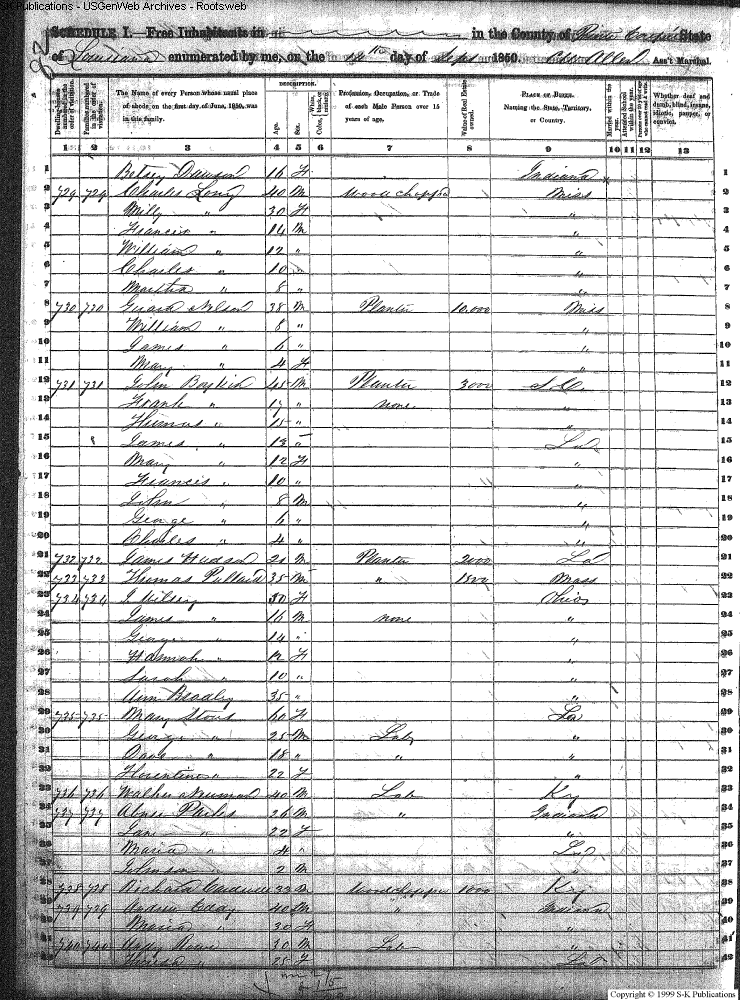 S-K Publications - USGenWeb Archives - Rootsweb
SCHEDULE I.—Free Inhabitants in in the County of Pointe Coupee State
of Louisiana enumerated by me, on the 12th day of Sept 1850. Allen Ass't Marshal.
DESCRIPTION.
Dwelling-houses numbered in the order of visitation.
Families numbered in the order of visitation.
The Name of every Person whose usual place of abode on the first day of June, 1850, was in this family.
Age.
Sex.
Color, White, black, or mulatto.
Profession, Occupation, or Trade of each Male Person over 15 years of age.
Value of Real Estate owned.
PLACE OF BIRTH. Naming the State, Territory, or Country.
Married within the year.
Attended School within the year.
Persons over 20 y'rs of age who cannot read & write.
Whether deaf and dumb, blind, insane, idiotic, pauper, or convict.
1 2 3 4 5 6 7 8 9 10 11 12 13
1 Betsey Dawson 16 F Indiana 1
2 729 729 Charles Long 40 M Wood chopper Miss 2
3 Milly " 30 F " 3
4 Francis " 14 M " 4
5 William " 12 " " 5
6 Charles " 10 " " 6
7 Martha " 8 " " 7
8 730 730 Nelson 38 M Planter 10,000 Miss 8
9 William " 8 " " 9
10 James " 6 " " 10
11 Mary " 4 F " 11
12 731 731 John 45 M Planter 3000 S.C. 12
13 Frank " 17 " none " 13
14 Thomas " 15 " " 14
15 James " 13 " La 15
16 Mary " 12 F " 16
17 Frances " 10 " " 17
18 John " 8 M " 18
19 George " 6 " " 19
20 Charles " 4 " " 20
21 732 732 James Hudson 21 M Planter 2000 La 21
22 733 733 Thomas 35 M " 1500 Mass 22
23 734 734 30 F Ohio 23
24 James " 16 M none " 24
25 George " 14 " " 25
26 Hannah " 12 F " 26
27 Sarah " 10 " " 27
28 Ann Bradley 35 " " 28
29 735 735 Mary 60 F La 29
30 George " 25 M Lab " 30
31 " 18 " " " 31
32 Florentine " 22 F " 32
33 736 736 Newman 40 M Lab Ky 33
34 737 737 26 M " Indiana 34
35 Jane " 22 F " 35
36 Maria " 4 " La 36
37 Johnson 2 M " 37
38 738 738 Richard 32 M Woodchopper 1000 Ky 38
39 739 739 Andrew Eddy 40 M " Indiana 39
40 Maria " 30 F " 40
41 740 740 30 M Lab " 41
42 " 25 F La 42
Copyright © 1999 S-K Publications